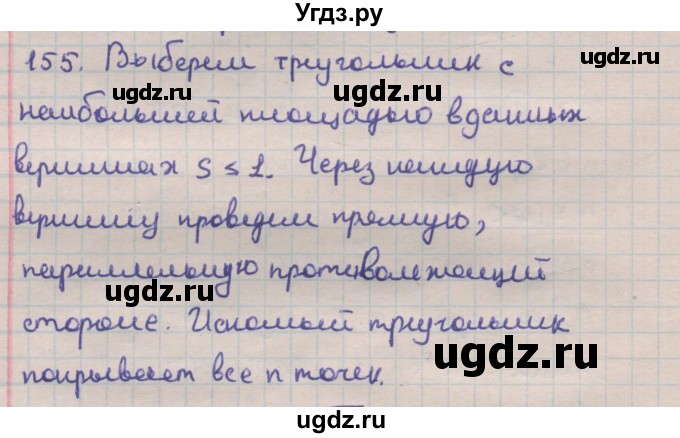 Угдз.ру
155. Выберем треугольник с
ugdz.ru ugdz.ru
наибольшей площадью в данных
вершинах S ≤ 1. Через каждую
ugdz.ru ugdz.ru
вершину проведем прямую,
параллельную противолежащий
ugdz.ru ugdz.ru
стороне. Искомый треугольник
ugdz.ru
покрывает все n точек.
ugdz.ru